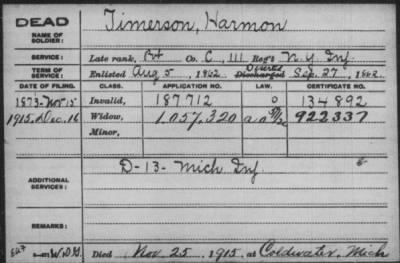 DEAD
NAME OF SOLDIER: Timerson, Harmon
SERVICE: Late rank, Pvt Co. C, 111 Reg't N.Y. Inf.
TERM OF SERVICE: Enlisted Aug 5, 1862 Discharged Sep. 27, 1862
DATE OF FILING. CLASS. APPLICATION NO. CERTIFICATE NO.
1873-Nov-15 Invalid, 187712 134892
1915, Dec. 16 Widow, 1,057,320 922337
Minor,
ADDITIONAL SERVICES: D-13- Mich Inf.
REMARKS:
Died Nov 25, 1915, at Coldwater, Mich